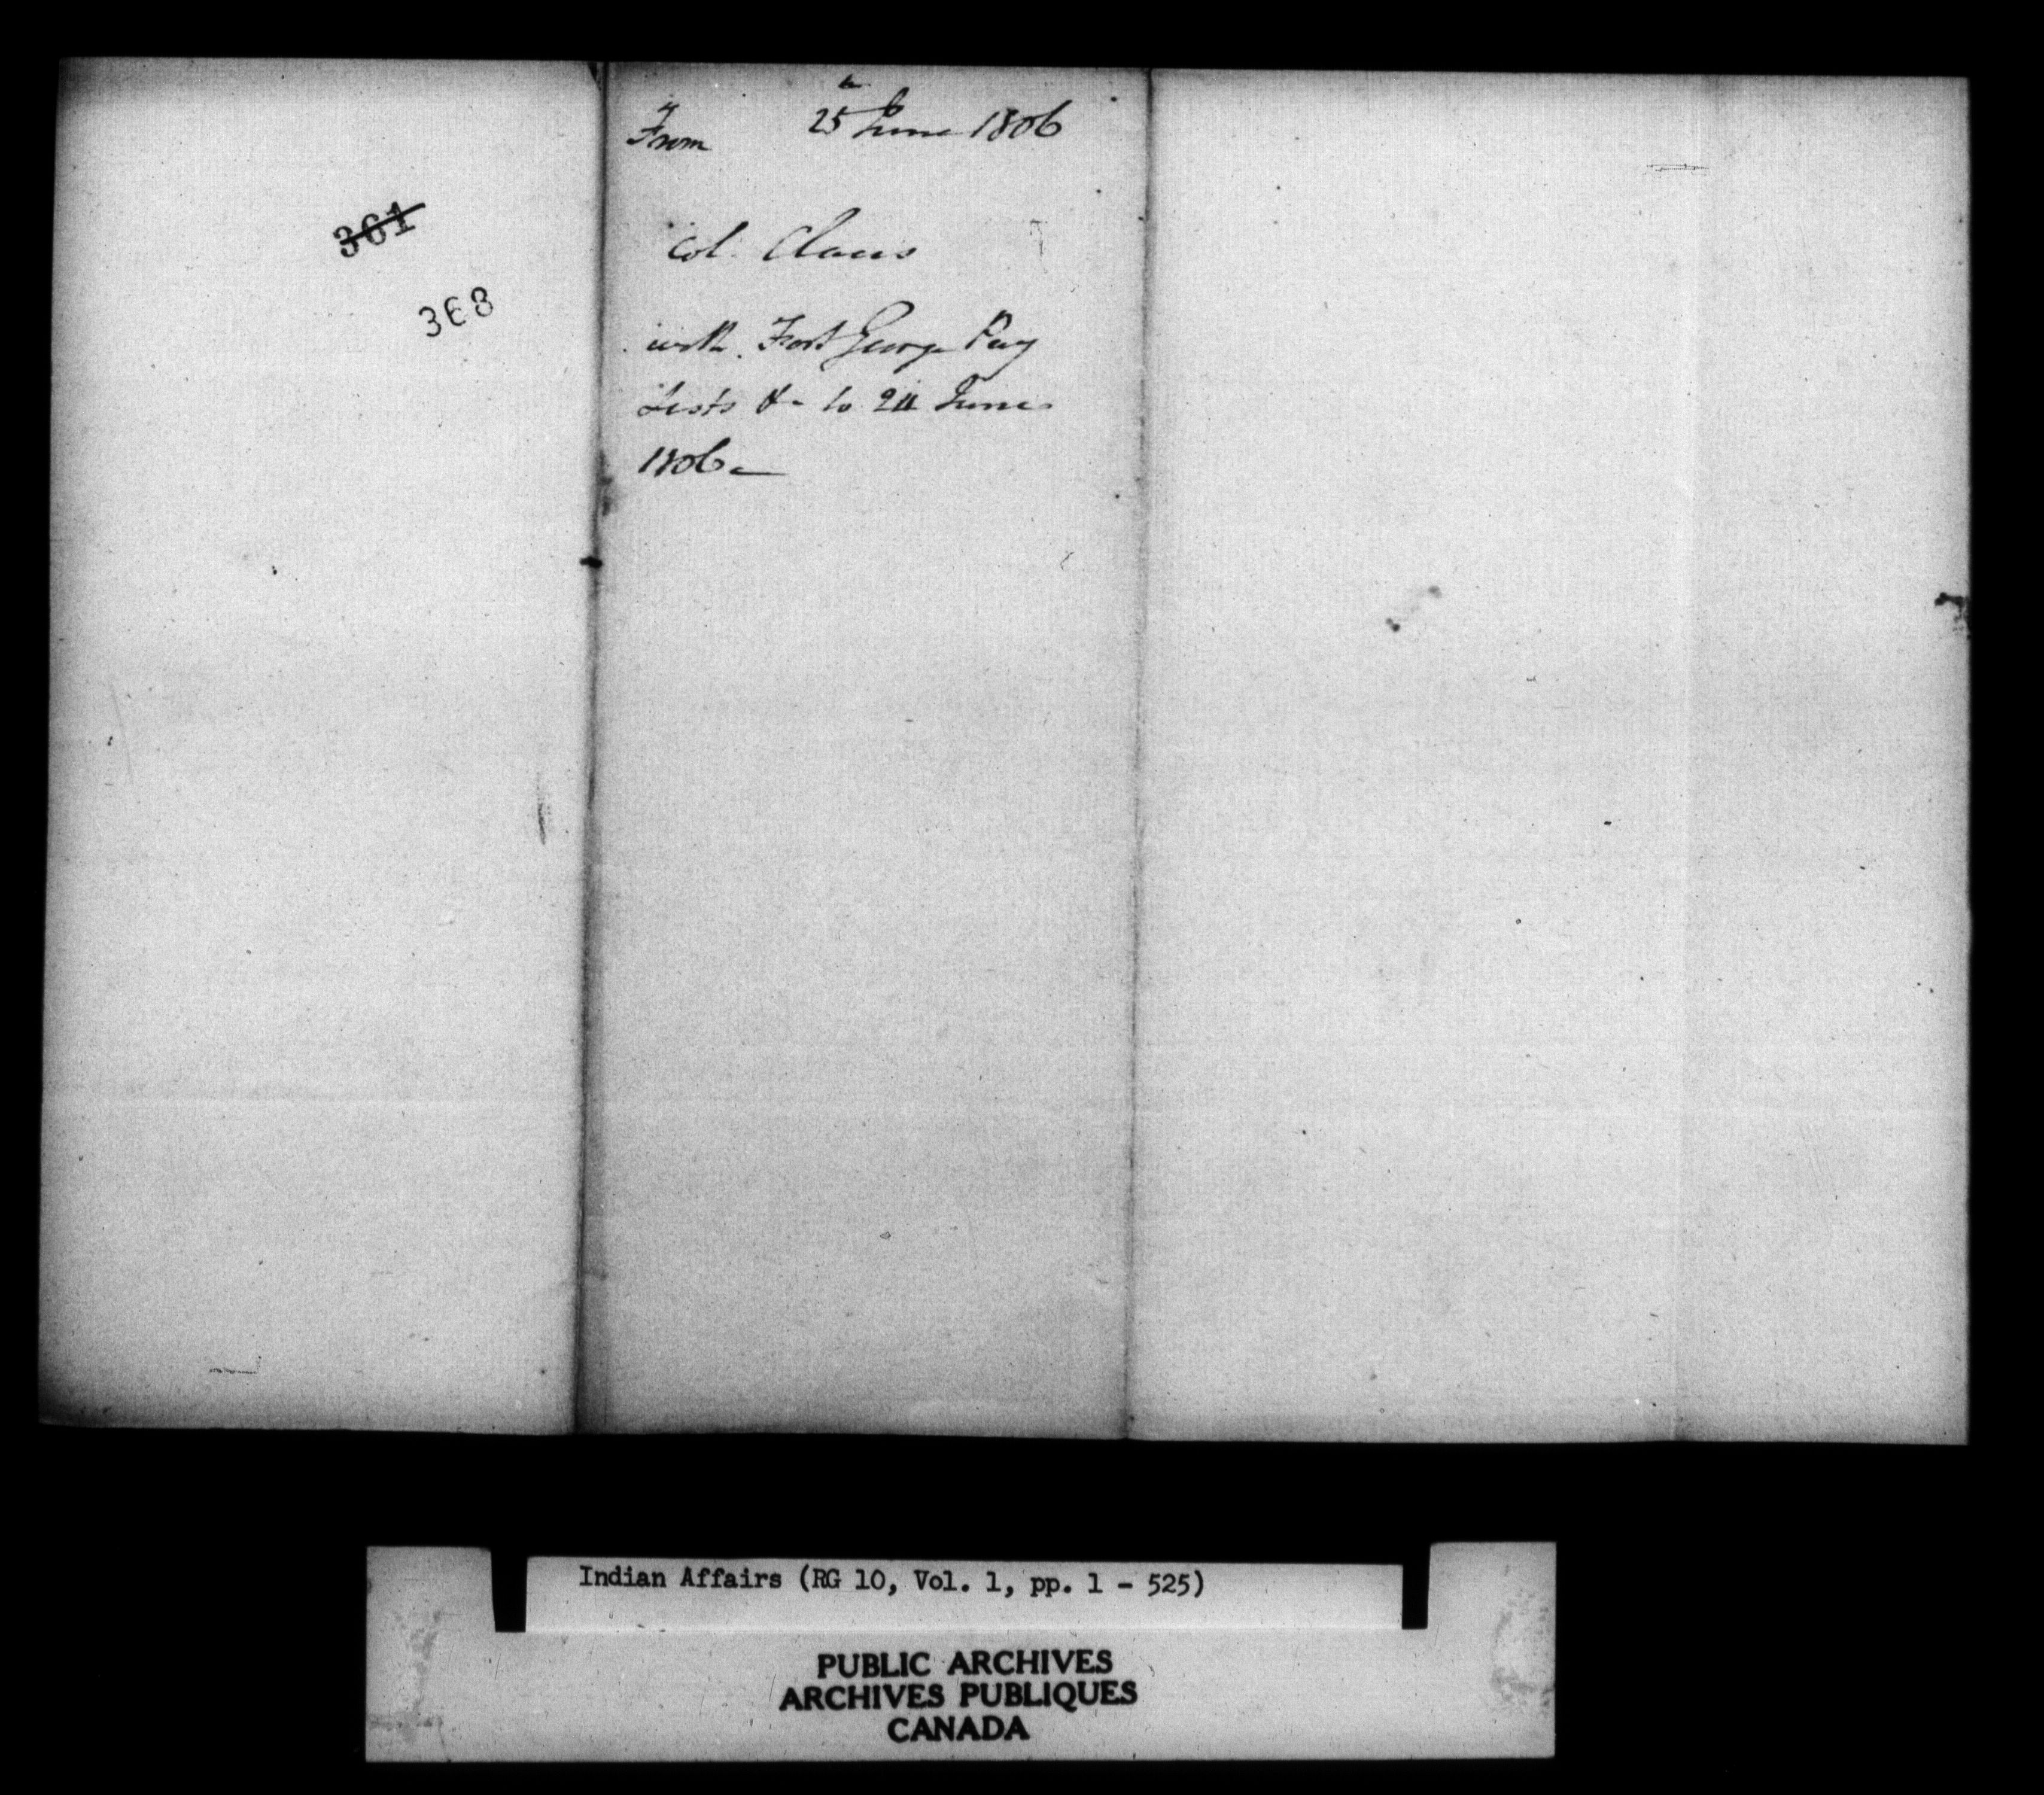 361
368
From 25th June 1806
Col. Claus
with Fort George Pay
Lists &c to 24 June
1806 —
Indian Affairs (RG 10, Vol. 1, pp. 1 - 525)
PUBLIC ARCHIVES
ARCHIVES PUBLIQUES
CANADA